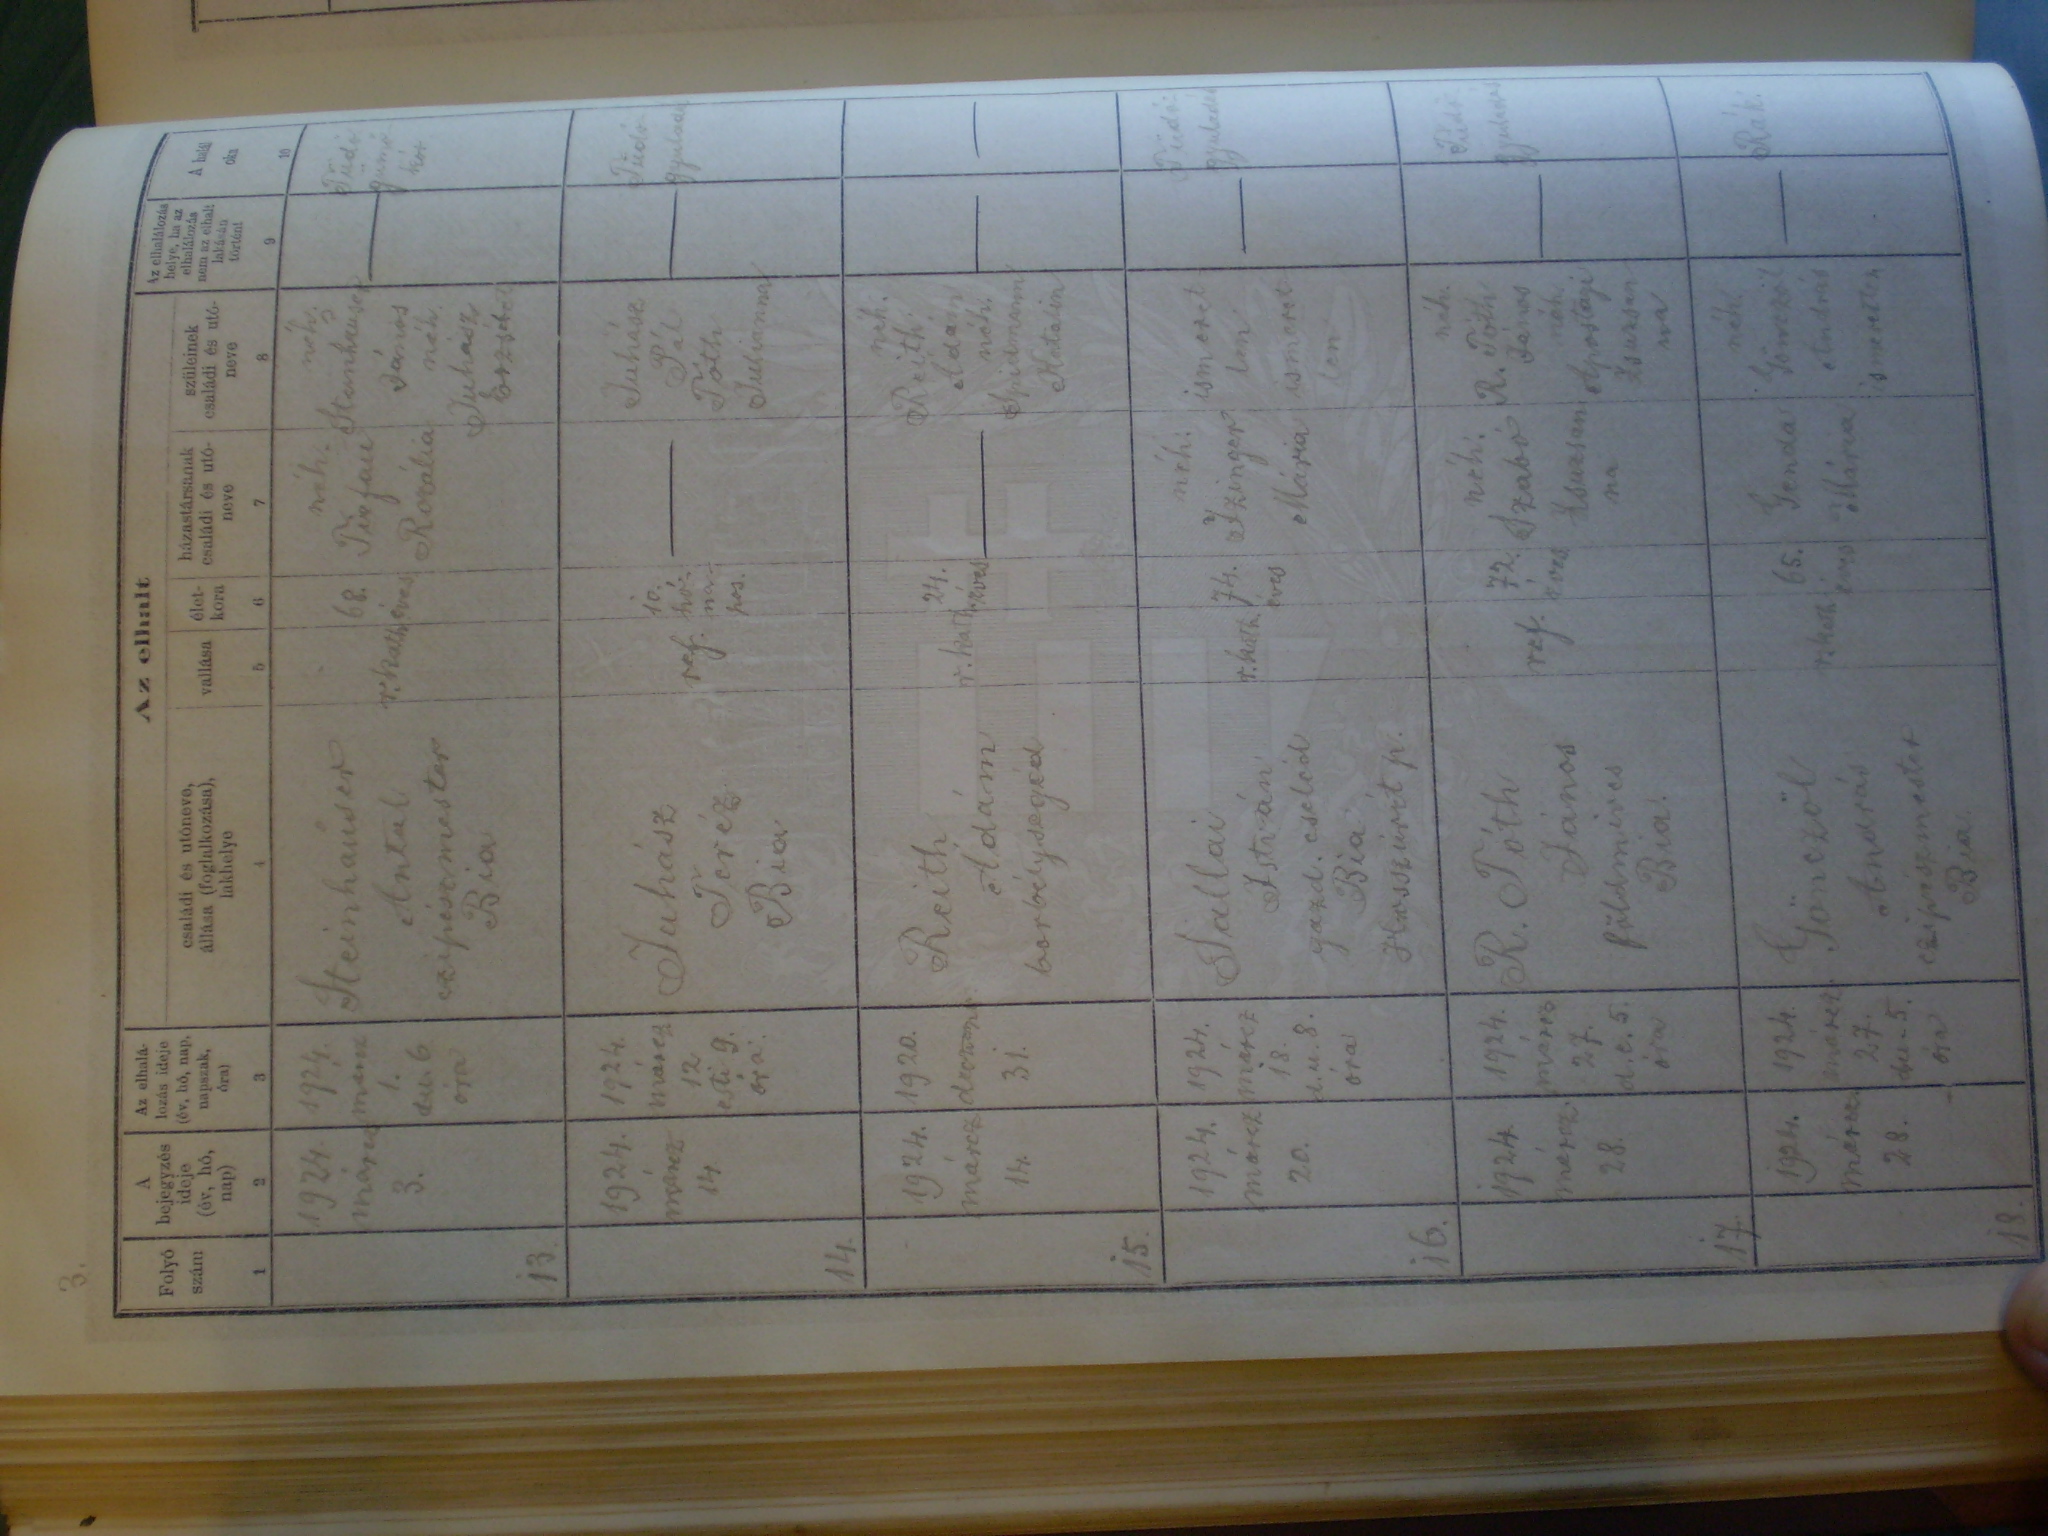 3.
Az elhalt
Folyó
szám
A
bejegyzés
ideje
(év, hó,
nap)
Az elhalá-
lozás ideje
(év, hó, nap,
napszak,
óra)
családi és utóneve,
állása (foglalkozása),
lakhelye
vallása
élet-
kora
házastársának
családi és utó-
neve
szüleinek
családi és utó-
neve
Az elhalálozás
helye, ha az
elhalálozás
nem az elhalt
lakásán
történt
A halál
oka
1
2
3
4
5
6
7
8
9
10
13.
1924.
márc
3.
1924.
márc
1.
du. 6
óra
Steinhauser
Antal
czipészmester
Bia
r. kath.
68.
éves
néh.
Rozália
néh.
Steinhauser
János
néh.
Juhász
Erzsébet
Tüdő
gümő
kór
14.
1924.
márcz
14.
1924.
márcz
12
esti 9.
óra.
Juhász
Teréz.
Bia
ref.
10.
hó-
na-
pos.
Juhász
Pál
Tóth
Julianna
Tüdő
gyulladás
15.
1924.
márcz
14.
1920.
31.
Reith
Ádám
borbélysegéd
r. kath.
24.
éves
néh.
Reith
Ádám
néh.
Spiedmann
Katalin
16.
1924.
márcz
20.
1924.
márcz
18.
d.u. 8.
óra
Sallai
István
gazd. cseléd
Bia
r. kath.
74.
éves
néh.
Izinger
Mária
ismeret
len
ismeret
len
Tüdő
gyuladás
17.
1924.
márcz.
28.
1924.
márcz
27.
d.e. 5.
óra
R. Tóth
János
földmives
Bia.
ref.
72.
éves
néh.
Szabó
Zsuzsan
na
néh.
R. Tóth
János
néh.
Apostagi
Zsuzsan
na
Tüdő
gyuladás
18.
1924.
márcz.
28.
1924.
márcz.
27.
du. 5.
óra
Gönczöl
András
czipészmester
Bia.
r. kath.
65.
éves
Mária
néh.
Gönczöl
András
ismeretlen
Rák.